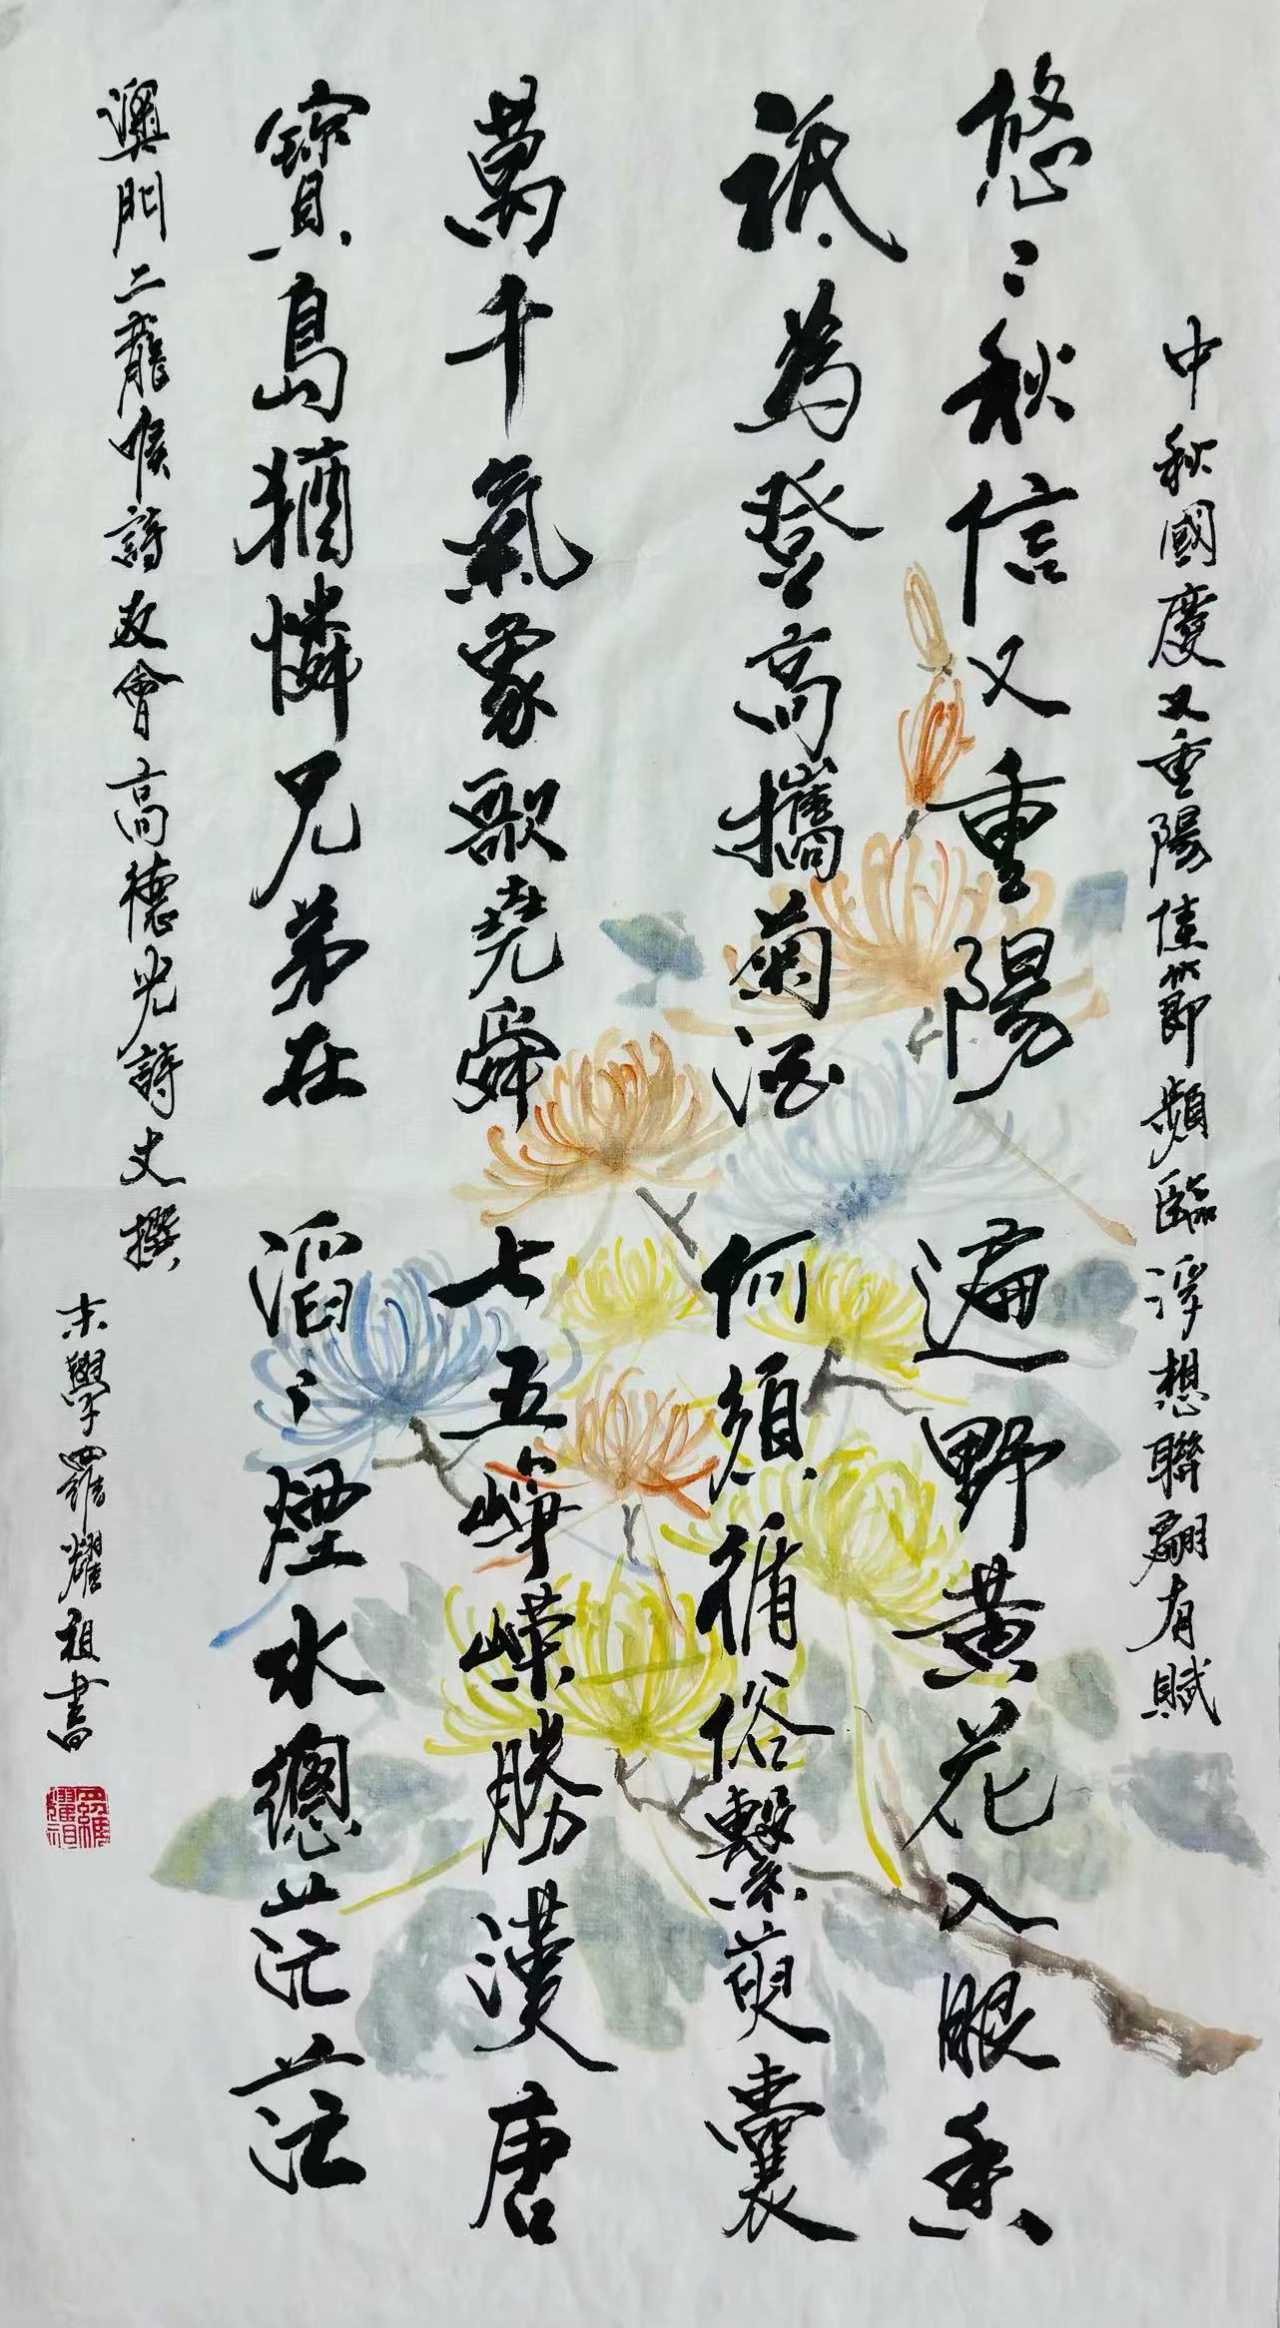 中秋國慶又重陽佳節頻臨浮想聯翩有賦
悠〻秋信又重陽 遍野黃花入眼香
祇為登高攜菊酒 何須循俗繫萸囊
萬千氣象歌堯舜 七五崢嶸勝漢唐
寶島猶憐兄弟在 滔〻煙水總茫茫
澳門二龍喉詩友會高德光詩丈撰
末學羅耀祖書
羅耀祖